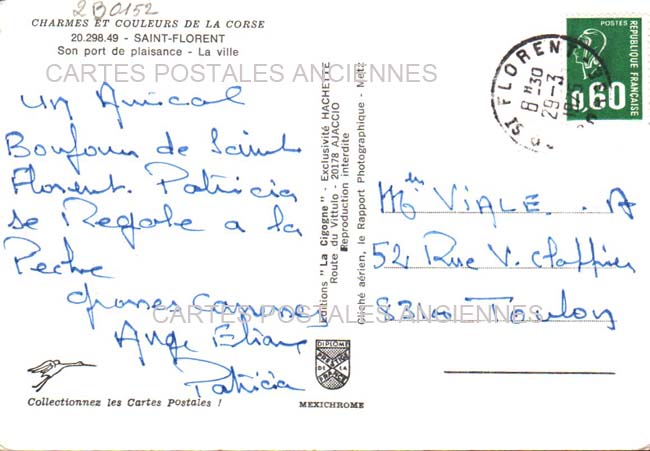 2B0152
CHARMES ET COULEURS DE LA CORSE
20.298.49 - SAINT-FLORENT
Son port de plaisance - La ville
CARTES POSTALES ANCIENNES
un Amical
Bonjour de Saint
Florent. Patricia
se Regale a la
Peche
Grosses
Ange Eliane
Patricia
Collectionnez les Cartes Postales !
Editions "La Cigogne" - Exclusivité HACHETTE
Route du Vittulo - 20178 AJACCIO
Reproduction interdite
Cliché aérien, le Rapport Photographique - Metz
DIPLOME
PRESTIGE
DE LA
FRANCE
MEXICHROME
POSTES
REPUBLIQUE FRANÇAISE
0,60
ST FLORENT
8H30
29-3
VIALE. A
52 Rue V.
Toulon
CARTES POSTALES ANCIENNES